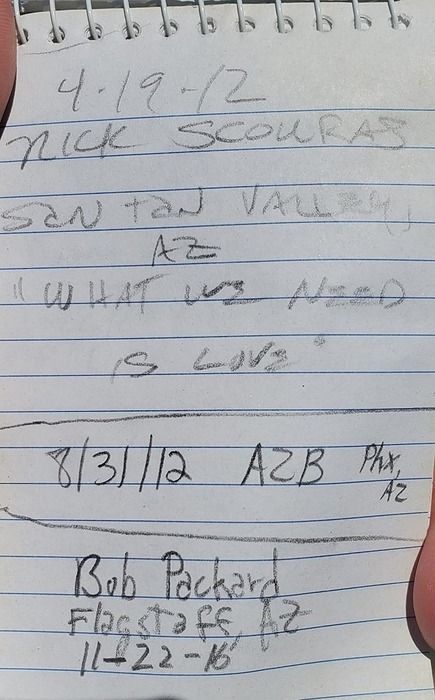 4-19-12
NICK SCOURAS
SAN TAN VALLEY,
AZ
"WHAT WE NEED
IS LOVE"
8/31/12 AZB Phx,
AZ
Bob Packard
Flagstaff, AZ
11-22-16